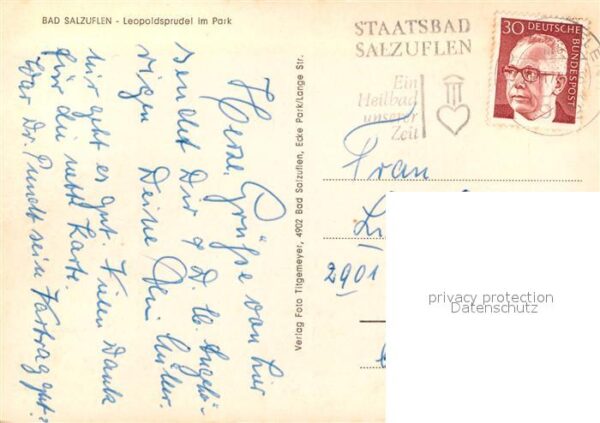 BAD SALZUFLEN - Leopoldsprudel im Park
Herzl. Grüße von hier
sendet Dir & D. lb. Angehö-
rigen
Deine
Mir geht es gut. Vielen Dank
für die nette Karte.
War Dr. Pundt sein Vortrag gut?
Verlag Foto Titgemeyer, 4902 Bad Salzuflen, Ecke Park/Lange Str.
STAATSBAD
SALZUFLEN
Ein
Heilbad
unserer
Zeit
30 DEUTSCHE
BUNDESPOST
Frau
2901
privacy protection
Datenschutz